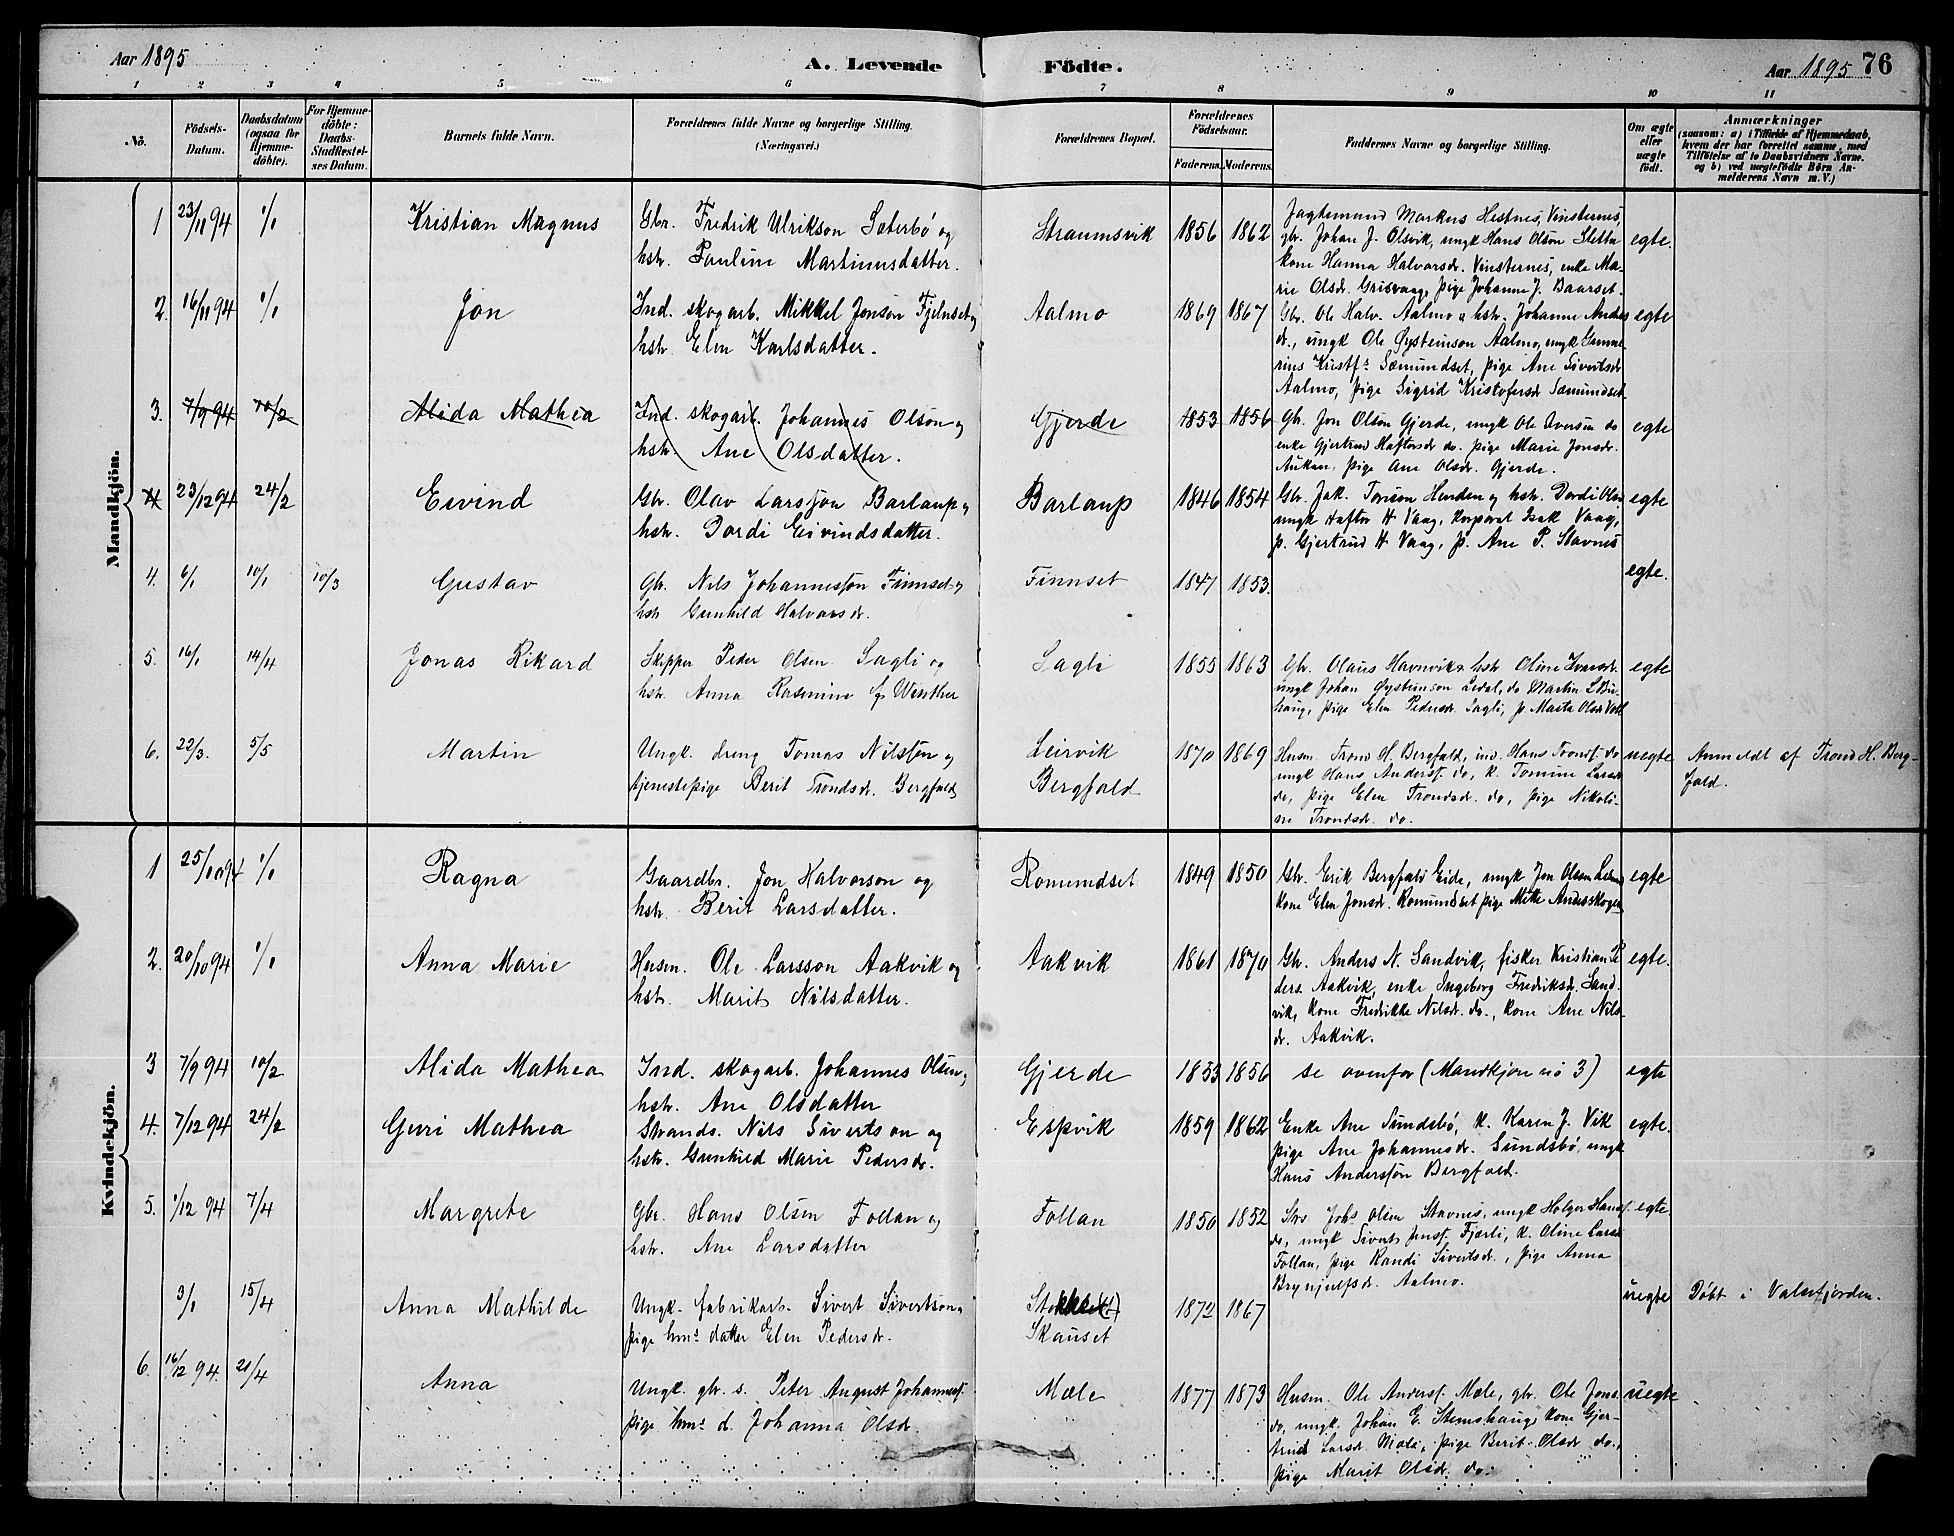 Aar 1895
A. Levende Födte.
Aar 1895 76
1 2 3 4 5 6 7 8 9 10 11
No.
Födsels-Datum.
Daabsdatum (ogsaa for Hjemmedöbte).
For Hjemmedöbte: Daabs-Stadfæstelses Datum.
Barnets fulde Navn.
Forældrenes fulde Navne og borgerlige Stilling. (Næringsvei.)
Forældrenes Bopæl.
Forældrenes Födselsaar.
Faderens. Moderens.
Faddernes Navne og borgerlige Stilling.
Om ægte eller uægte födt.
Anmærkninger
(saasom: a) i Tilfælde af Hjemmedaab, hvem der har forrettet samme, med Tilföielse af to Daabsvidners Navne. og b) ved uægtefödte Börn Anmelderens Navn m. V.)
Mandkjön.
1 23/11 94 1/1 Kristian Magnus
Gbr. Fredrik Ulrikson Sæterbø og
hstr. Pauline Martinusdatter.
Straumsvik 1856 1862
Jagtemand Markus Hestnes, Vinsternes,
gbr. Johan J. Olsvik, ungk Hans Olson Sletta
kone Hanna Halvorsdr. Vinsternes, enke Ma-
rie Olsdr. Grisvaag, pige Johanne J. Baarset.
egte.
2. 16/11 94 1/1 Jon
Ind. skogarb. Mikkel Jonson Fjelnset og
hstr. Elen Karlsdatter.
Aalmo 1869 1867
Gbr. Ole Halv. Aalmo & hstr. Johanne Anders
dr., ungk Ole Øysteinson Aalmo, ungk Gunne-
rius Kristf. Sæmundset, pige Ane Sivertsdr
Aalmo, pige Sigrid Kristofersdr Sæmundset
egte
3. 7/9 94 10/2 Alida Mathea
Ind. skogarb. Johannes Olson og
hstr. Ane Olsdatter.
Gjerde 1853 1856
Gbr. Jon Olson Gjerde, ungk Ole Iversen do
enke Gjertrud Haftorsdr do. pige Marie Jonsdr.
Aukan, pige Ane Olsdr. Gjerde.
egte
4 23/12 94 24/2 Eivind
Gbr. Olav Larsson Barlaup og
hstr. Dordi Eivindsdatter.
Barlaup 1846 1854
Gbr. Jak. Tørison Henden og hstr. Dordi Olsdr
ungk Haftor H Vaag, Korporal Isak Vaag,
p. Gjertrud H Vaag, p. Ane P. Stavnes
egte
4. 6/1 10/1 10/3 Gustav
Gbr. Nils Johannesson Finnset og
hstr Gunhild Halvorsdr.
Finnset 1847 1853.
egte.
5. 16/1 14/4 Jonas Rikard
Skipper Peder Olsen Sagli og
hstr. Anna Rasmine f. Winther
Sagli 1855 1863
Gbr. Olaus Havnvik & hstr Oline Iversdr.
ungk Johan Øysteinson Ledal, do Martin L Bu-
haug, pige Elen Pedersdr. Sagli, p. Marta Olsdr Voll
egte
6. 22/3. 5/5 Martin
Ungk. dreng Tomas Nilssen og
tjenestepige Berit Trondsdr. Bergfald
Leirvik
Bergfald
1870 1869
Husm. Trond H. Bergfald, ind. Hans Tronds. do
ungk Hans Anderss. do, k. Tomine Larsdr
do, pige Elen Trondsdr. do, pige Nikoli-
ne Trondsdr. do.
uegte
Anmeldt af Trond H. Berg-
fald.
Kvindekjön.
1 25/10 94 1/1 Ragna
Gaardbr. Jon Halvorson og
hstr. Berit Larsdatter.
Romundset 1849 1850
Gbr. Erik Bergfald Eide, ungk Jon Olsen Ledal
kone Elen Jonsdr. Romundset pige Mette Andersskogen
egte
2. 20/10 94 1/1 Anna Marie
Husm. Ole Larsson Aakvik og
hstr. Marit Nilsdatter.
Aakvik 1861 1870
Gbr. Anders N. Sandvik, fisker Kristian P
ders. Aakvik, enke Ingeborg Fredriksdr. Sand-
vik, kone Fredrikke Nilsdr. do., kone Ane Nils-
dr. Aakvik.
egte.
3 7/9 94 10/2 Alida Mathea
Ind. skogarb. Johannes Olsen og
hstr. Ane Olsdatter
Gjerde 1853 1856
se ovenfor (Mandkjøn nö 3)
egte
4. 7/12 94 24/2 Guri Mathea
Strands. Nils Sivertson og
hstr. Gunhild Marie Pedersdr.
Espvik 1859 1862
Enke Ane Sundsbø, k. Karen J. Vik
pige Ane Johannesdr. Sundsbø, ungk
Hans Andersson Bergfald.
egte.
5. 1/12 94 7/4 Margrete
Gbr. Hans Olsen Follan og
hstr. Ane Larsdatter
Follan 1850 1852
Strs Johs Olsen Stavnes, ungk Holger Hanss.
do, ungk Sivert Jenss. Fjærli, k. Oline Larsd
Follan, pige Randi Sivertsdr., pige Anna
Brynjulfsdr. Aalmo.
egte
3/1 15/4 Anna Mathilde
Ungk. fabrikarb. Sivert Sivertson og
pige hms datter Elen Pedersdr.
Skauset
1872 1867
uegte
Døbt i Valsøfjorden.
6. 16/12 94. 21/4 Anna
Ungk. gbr. s. Peter August Johanness.
pige hms d. Johanna Olsdr.
Mæle 1877 1873
Husm. Ole Anderss. Mæle, gbr. Ole Jons.
do, ungk. Johan E. Stemshaug, kone Gjer-
trud Larsdr Mæle, pige Berit Olsdr do.,
pige Marit Olsdr. do.
uegte